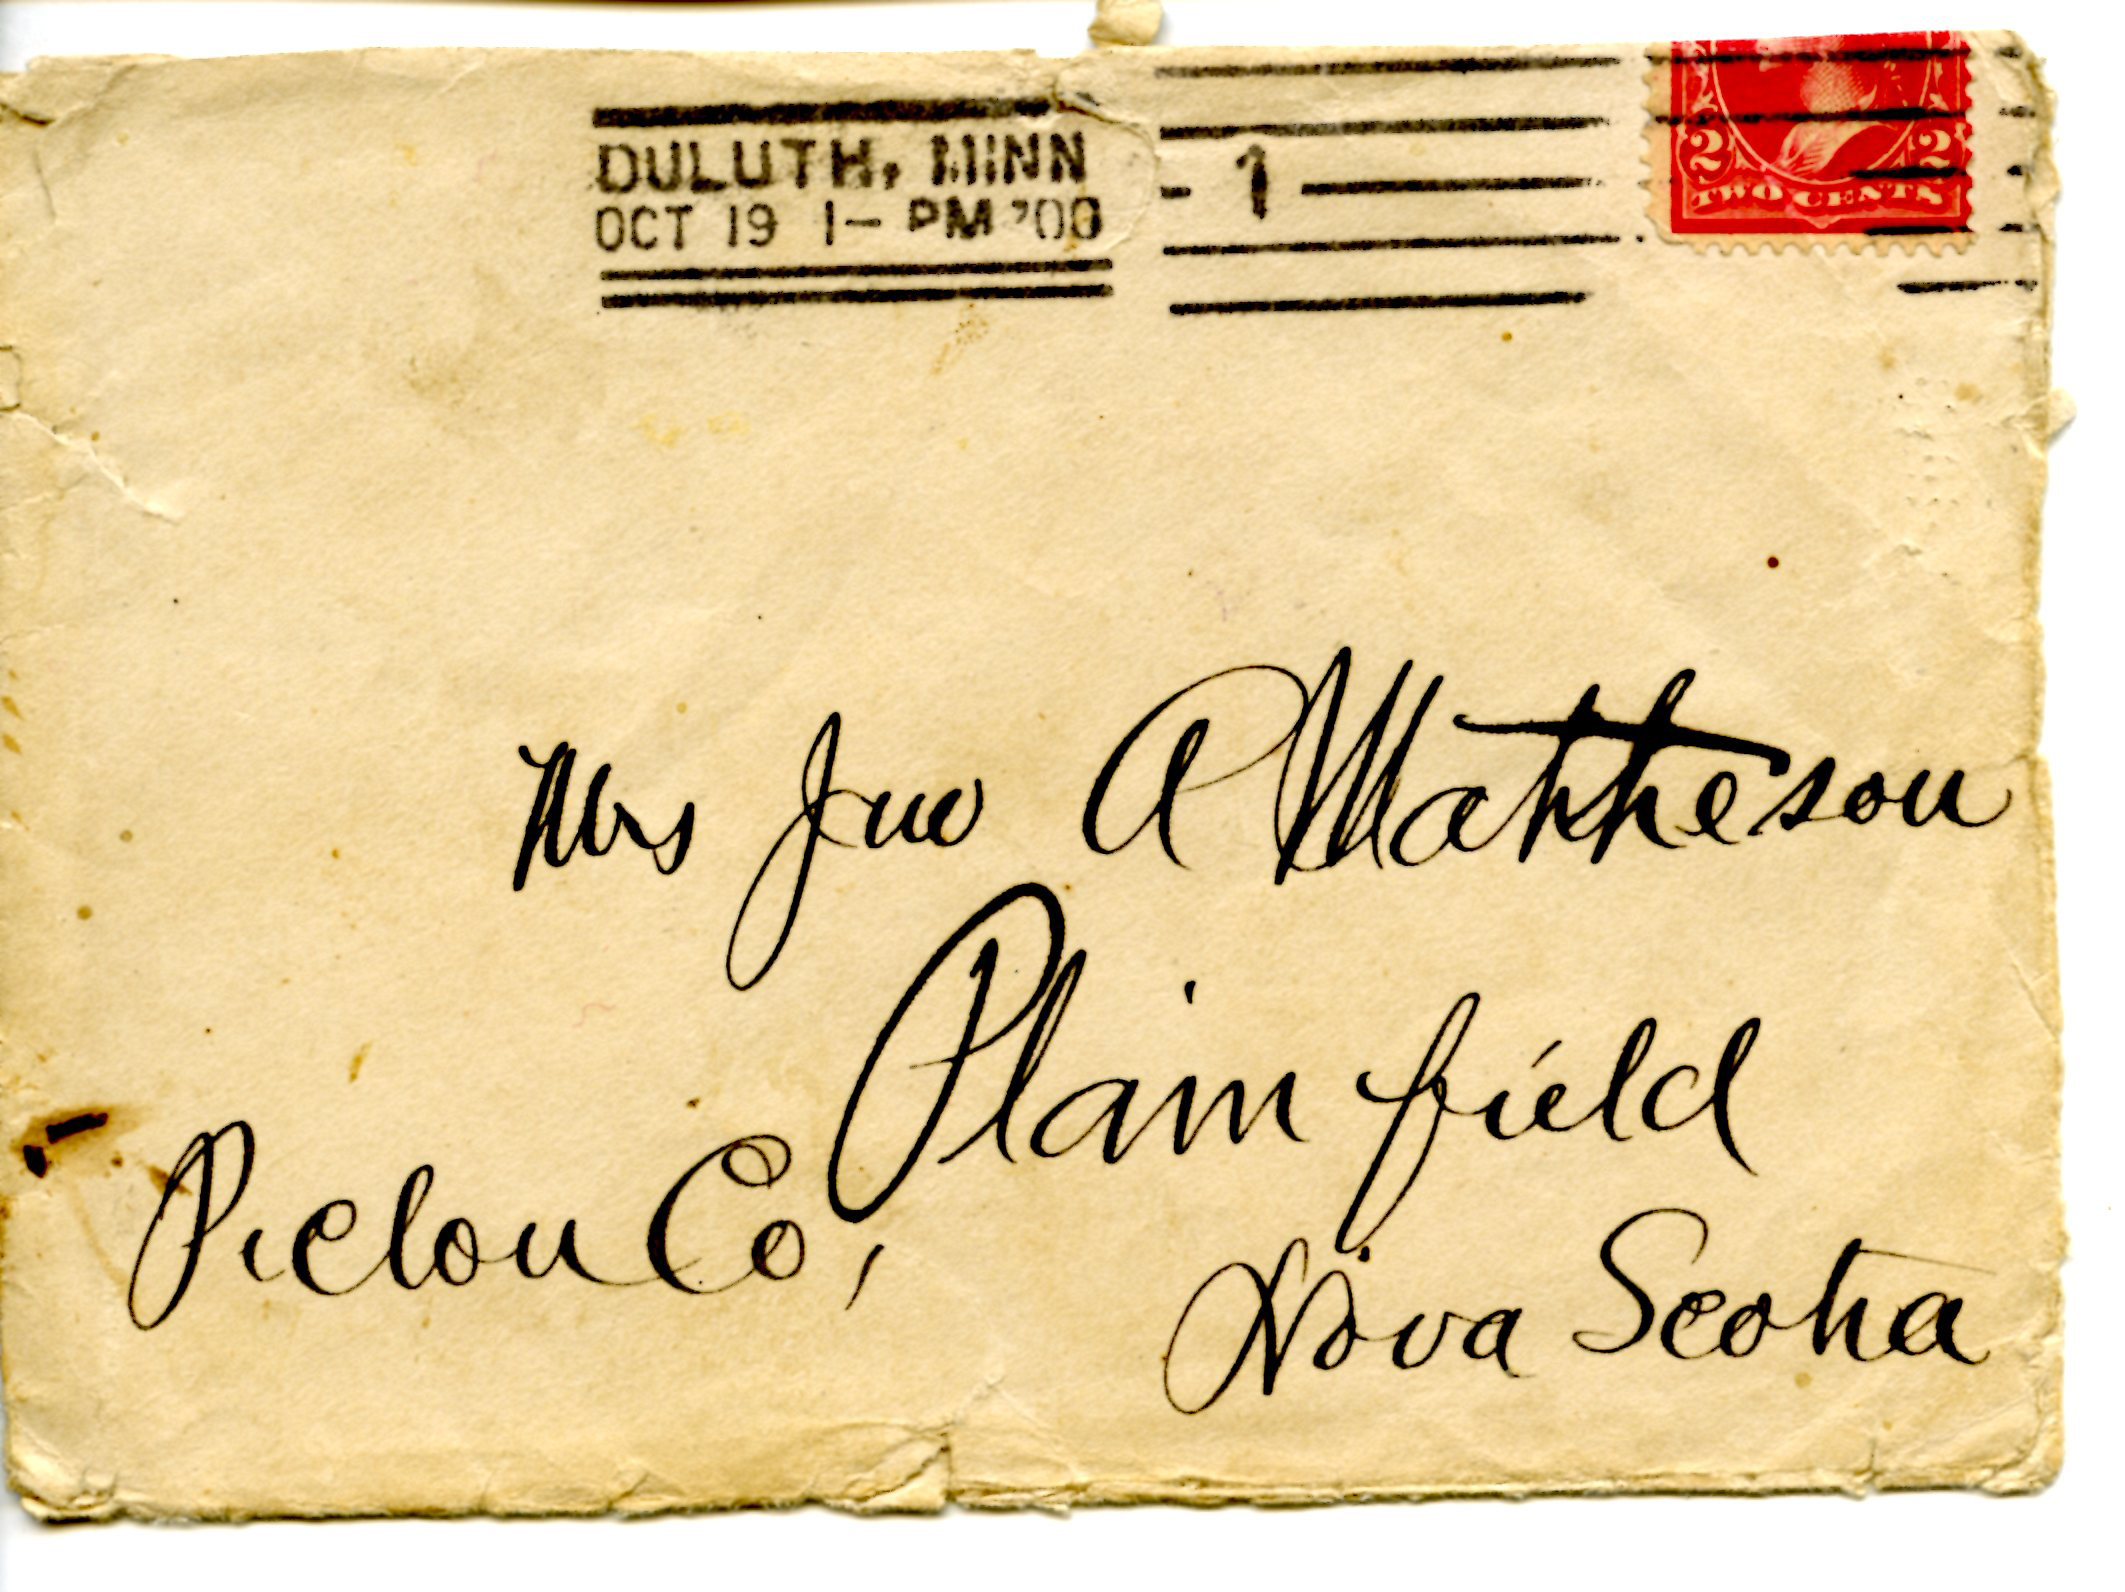 DULUTH, MINN
OCT 19 1- PM '00
1
2 2
TWO CENTS
Mrs Jno A Matheson
Plainfield
Pictou Co,
Nova Scotia